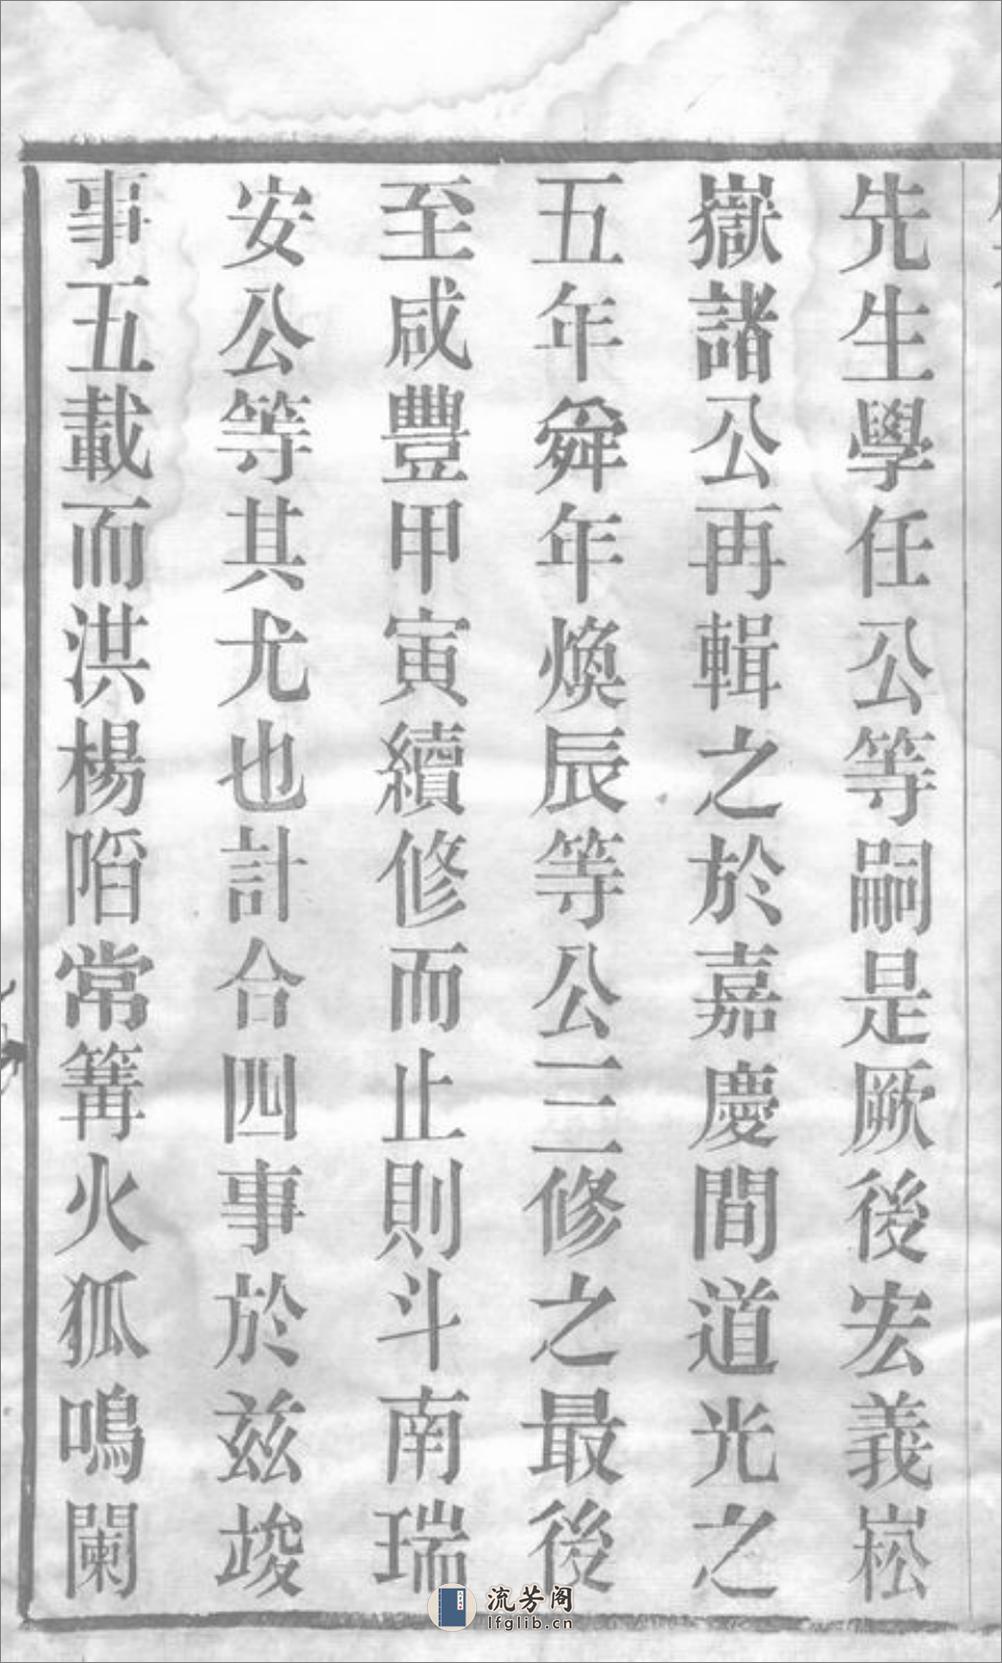 先生學任公等嗣是厥後宏義崧
嶽諸公再輯之於嘉慶間道光之
五年舜年煥辰等公三修之最後
至咸豐甲寅續修而止則斗南瑞
安公等其尤也計合四事於兹竣
事五載而洪楊陷常篝火狐鳴闌
流芳阁
lfglib.cn